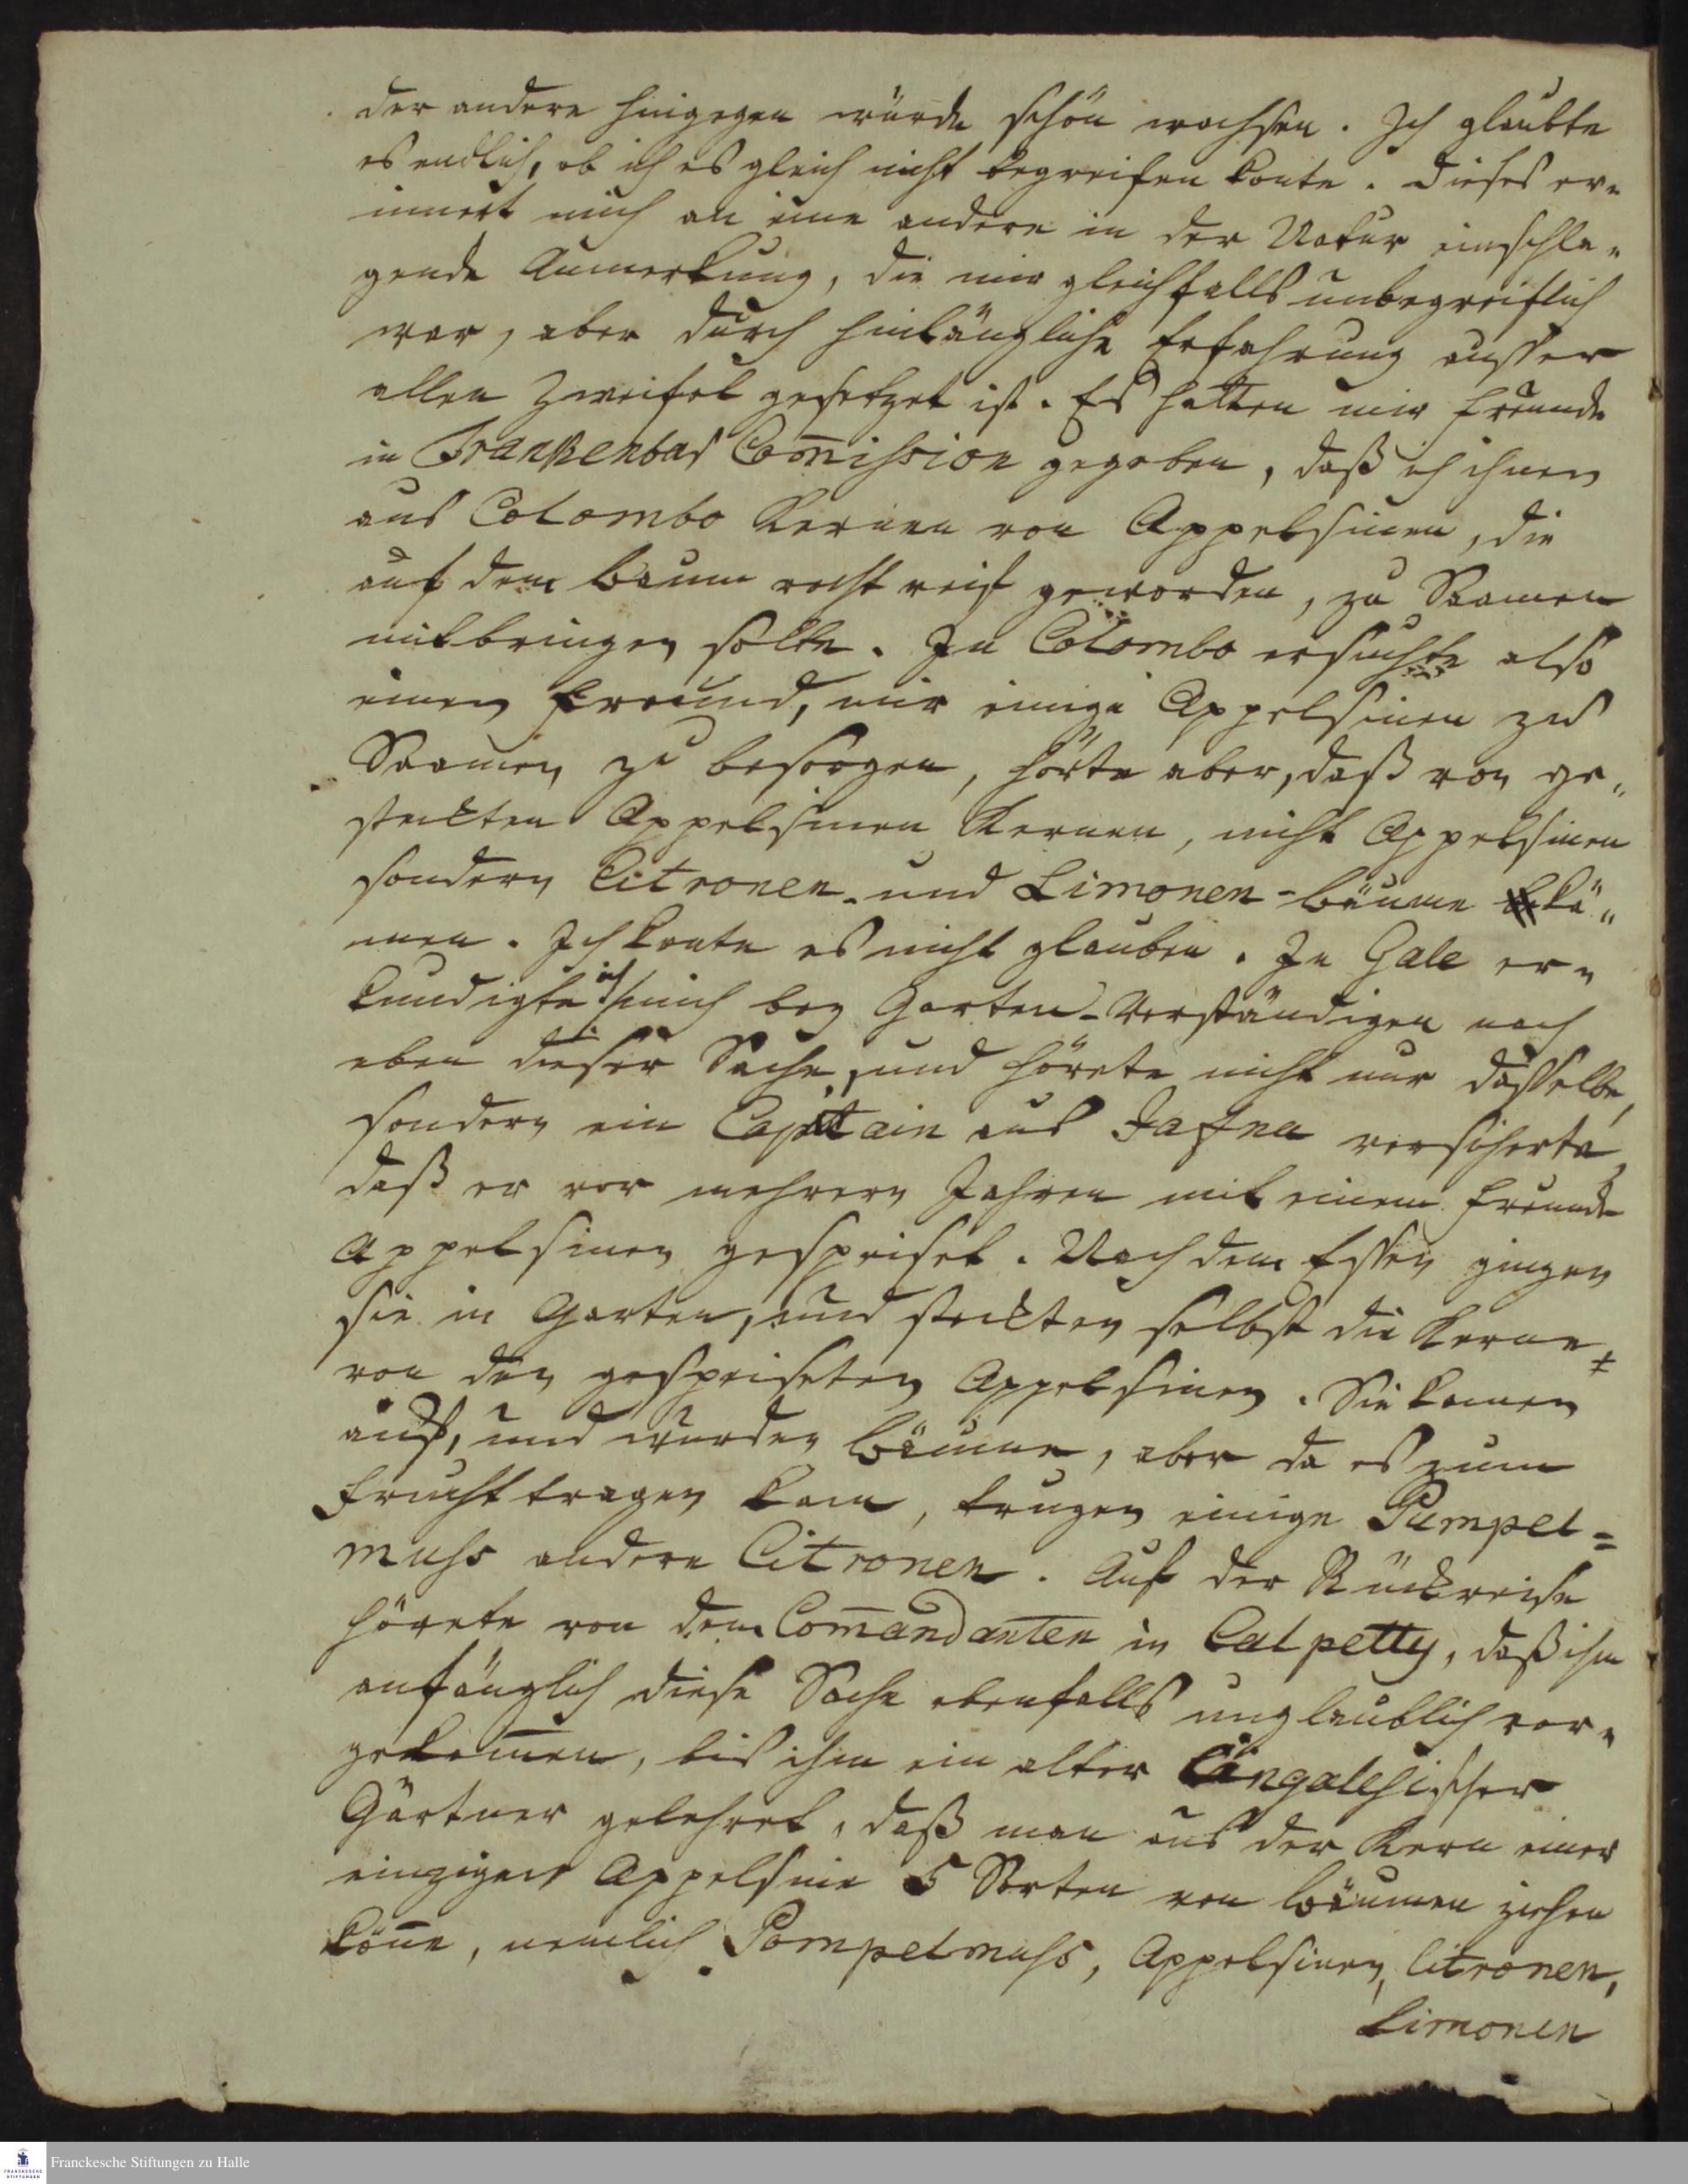 der andere hingegen würde schön wachsen. Ich glaubte
es endlich, ob ich es gleich nicht begreifen konte. Dieses er„
innert mich an eine andere in der Natur einschla„
gende Anmerkung, die mir gleichfalls unbegreiflich
war, aber durch hinlängliche Erfahrung ausser
allen Zweifel gesetzet ist. Es hatten mir Freunde
in Trankenbar Com̅ission gegeben, daß ich ihnen
aus Colombo Kernen von Appelsinen, die
auf dem Baum recht reif geworden, zu Saamen
mitbringen solte. In Colombo ersuchte also
einen Freund, mir einige Appelsinen zu
Saamen zu besorgen, hörte aber, daß von ge„
steckten Appelsinen Kernen, nicht Appelsinen
sondern Citronen- und Limonen-Bäume kä„
men. Ich konte es nicht glauben. In Gale er„
kundigte ich mich bey Garten-Verständigen nach
eben dieser Sache, und hörete nicht nur dasselbe,
sondern ein Capitain aus Jafna versicherte,
daß er vor mehrern Jahren mit einem Freunde
Appelsinen gespeiset. Nach dem Essen gingen
sie in Garten, und steckten selbst die Kerne
von den gespeiseten Appelsinen. Sie kamen
auf, und wurden Bäume, aber da es zum
Frucht tragen kam, trugen einige Pumpel=
muss andere Citronen. Auf der Rückreise
hörete von dem Com̅andanten in Calpetty, daß ihm
anfänglich diese Sache ebenfalls unglaublich vor„
gekom̅en, bis ihm ein alter Cingalesischer
Gärtner gelehret, daß man aus der Kern einer
einzigen Appelsine 5 Sorten von Bäumen ziehen
kön̅e, nemlich Pompelmuss, Appelsinen, Citronen,
Limonen
Franckesche Stiftungen zu Halle